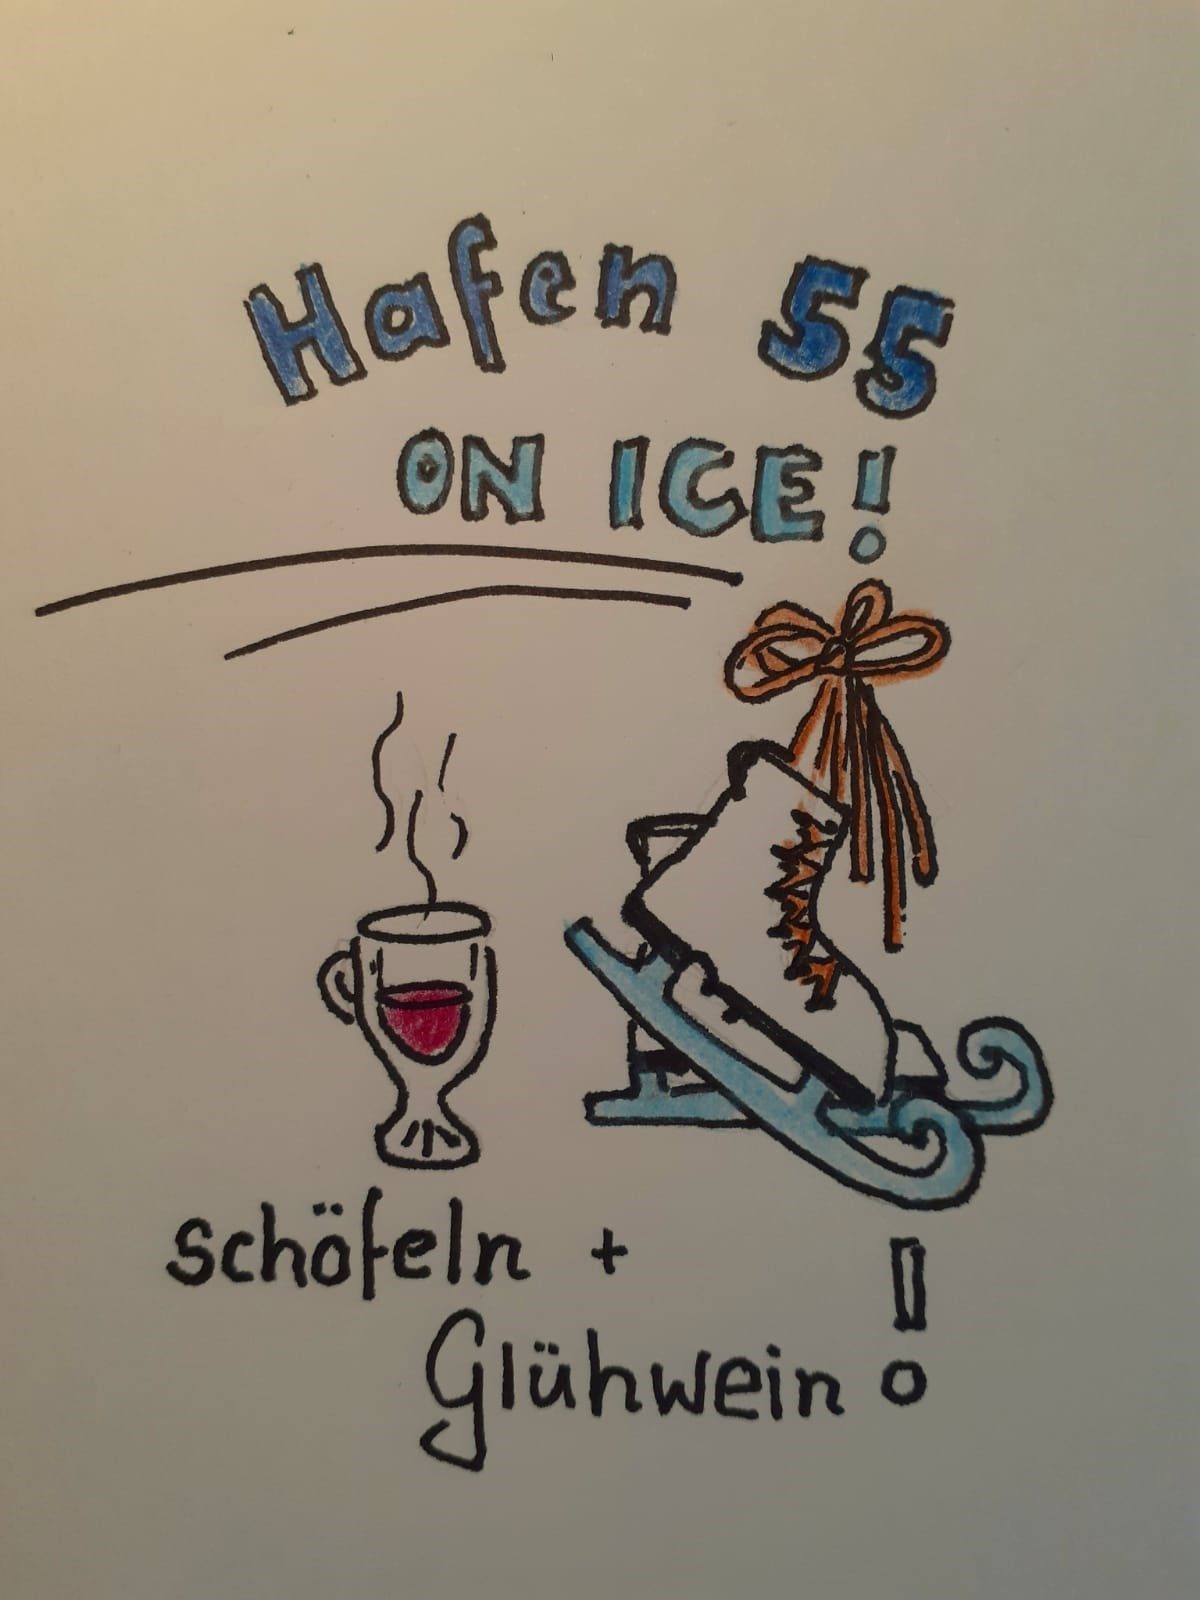 Hafen 55
ON ICE!
schöfeln +
Glühwein!